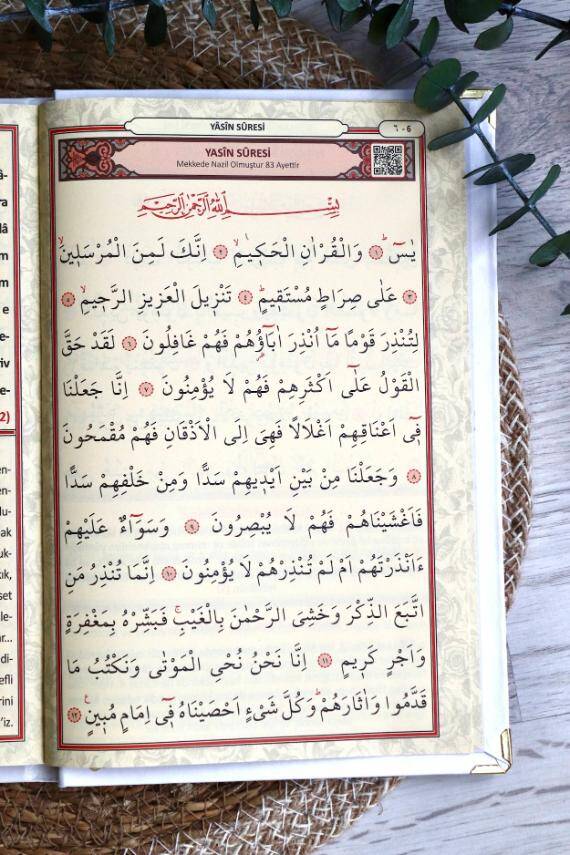 YÂSÎN SÛRESİ
٦ - 6
YASİN SÛRESİ
Mekkede Nazil Olmuştur 83 Ayettir
بِسْمِ اللّٰهِ الرَّحْمٰنِ الرَّحِيمِ
يٰسٓ ﴿١﴾ وَالْقُرْاٰنِ الْحَكِيمِۙ ﴿٢﴾ اِنَّكَ لَمِنَ الْمُرْسَلِينَۙ
﴿٣﴾ عَلٰى صِرَاطٍ مُسْتَقِيمٍۜ ﴿٤﴾ تَنْزِيلَ الْعَزِيزِ الرَّحِيمِۙ ﴿٥﴾
لِتُنْذِرَ قَوْمًا مَٓا اُنْذِرَ اٰبَٓاؤُ۬هُمْ فَهُمْ غَافِلُونَ ﴿٦﴾ لَقَدْ حَقَّ
الْقَوْلُ عَلٰٓى اَكْثَرِهِمْ فَهُمْ لَا يُؤْمِنُونَ ﴿٧﴾ اِنَّا جَعَلْنَا
فِٓي اَعْنَاقِهِمْ اَغْلَالًا فَهِيَ اِلَى الْاَذْقَانِ فَهُمْ مُقْمَحُونَ
﴿٨﴾ وَجَعَلْنَا مِنْ بَيْنِ اَيْدِيهِمْ سَدًّا وَمِنْ خَلْفِهِمْ سَدًّا
فَاَغْشَيْنَاهُمْ فَهُمْ لَا يُبْصِرُونَ ﴿٩﴾ وَسَوَٓاءٌ عَلَيْهِمْ
ءَاَنْذَرْتَهُمْ اَمْ لَمْ تُنْذِرْهُمْ لَا يُؤْمِنُونَ ﴿١٠﴾ اِنَّمَا تُنْذِرُ مَنِ
اتَّبَعَ الذِّكْرَ وَخَشِيَ الرَّحْمٰنَ بِالْغَيْبِۚ فَبَشِّرْهُ بِمَغْفِرَةٍ
وَاَجْرٍ كَرِيمٍ ﴿١١﴾ اِنَّا نَحْنُ نُحْيِ الْمَوْتٰى وَنَكْتُبُ مَا
قَدَّمُوا وَاٰثَارَهُمْۜ وَكُلَّ شَيْءٍ اَحْصَيْنَاهُ فِٓي اِمَامٍ مُبِينٍ۟ ﴿١٢﴾